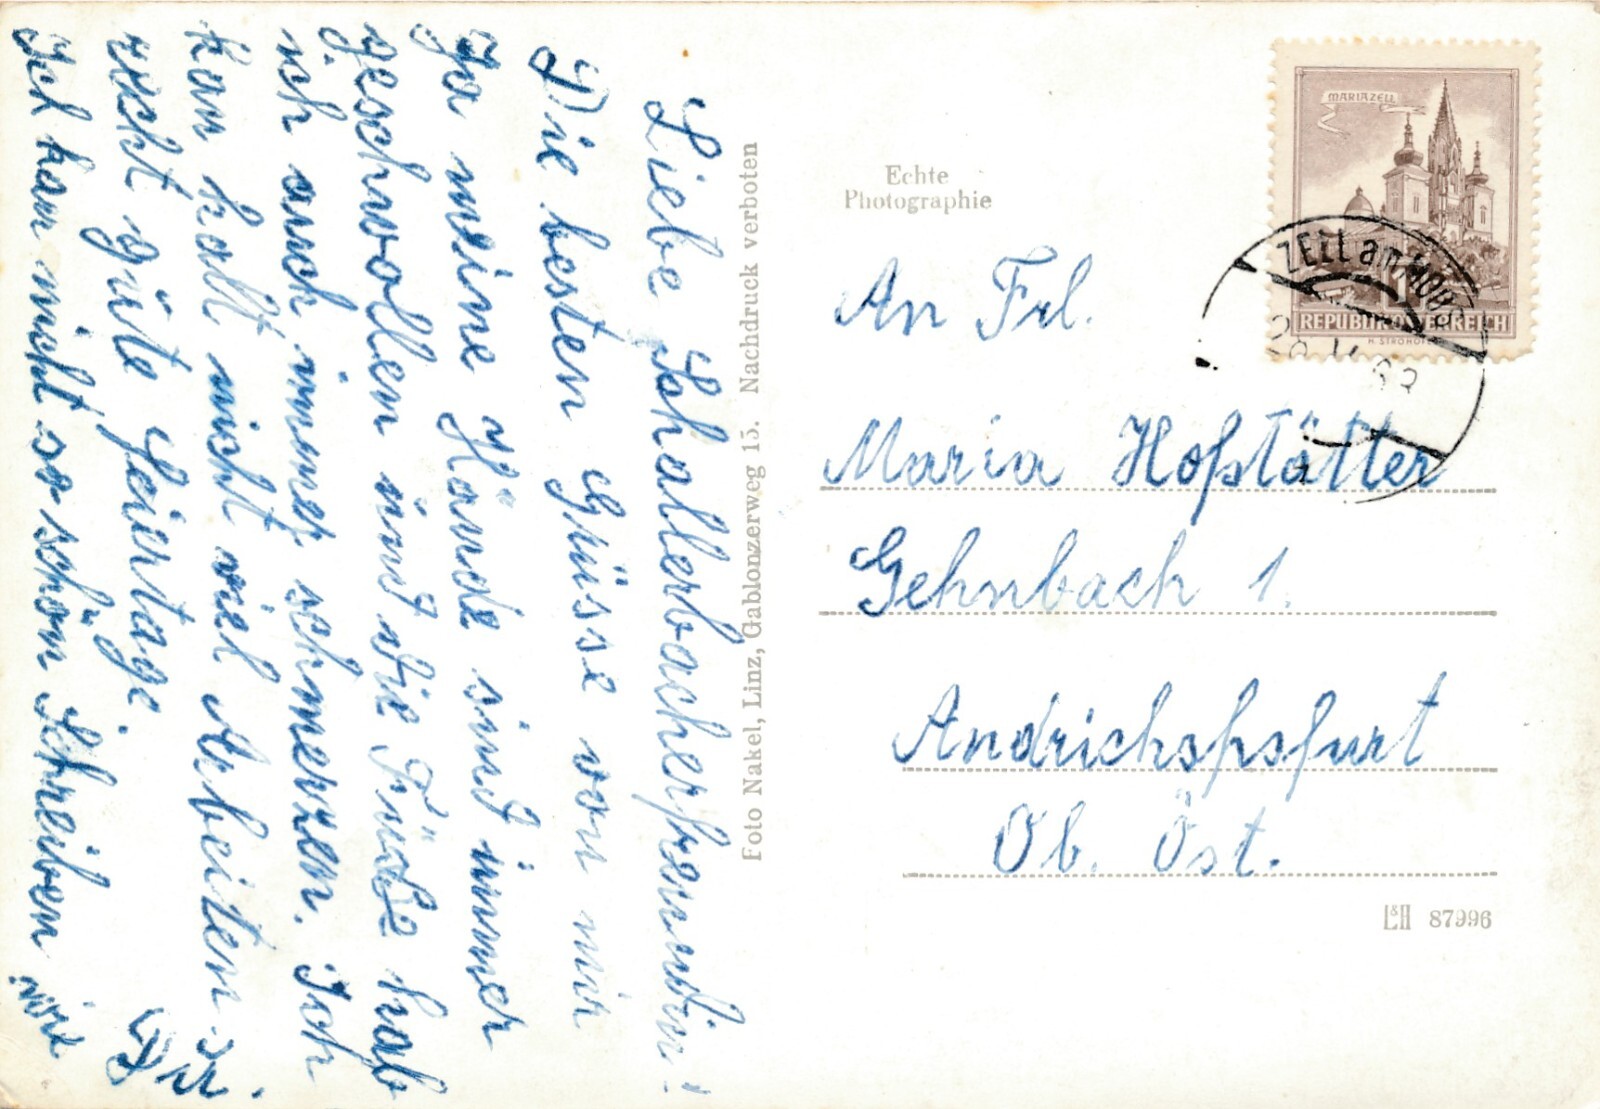 Liebe Schallerbacherfreundin!
Die besten Grüsse von mir
Ja meine Hände sind immer
geschwollen und die Füsse hab
ich auch immer schmerzen. Ich
kan halt nicht viel Arbeiten.
recht güte Feiertage.
Ich kan nicht so schön Schreiben
wie
Dir
Foto Nakel, Linz, Gablonzerweg 15. Nachdruck verboten
Echte
Photographie
MARIAZELL
REPUBLIK ÖSTERREICH
ZELL am MOOS
An Frl.
Maria Hofstätter
Gehnbach 1.
Andrichspsfurt
Ob. Öst.
L&H 87996